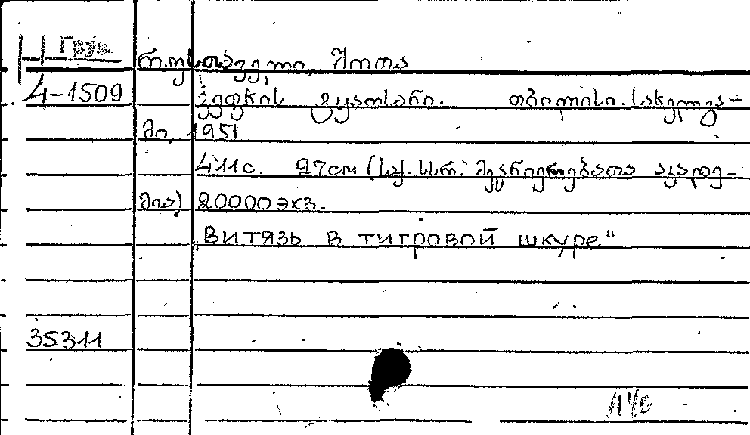 Груз.
რუსთაველი, შოთა
4-1509
ვეფხის ტყაოსანი. თბილისი. სახელგა-
მი, 1951
411с. 27см (საქ. სსრ. მეცნიერებათა აკადე-
მია) 20000 экз.
"Витязь в тигровой шкуре"
35311